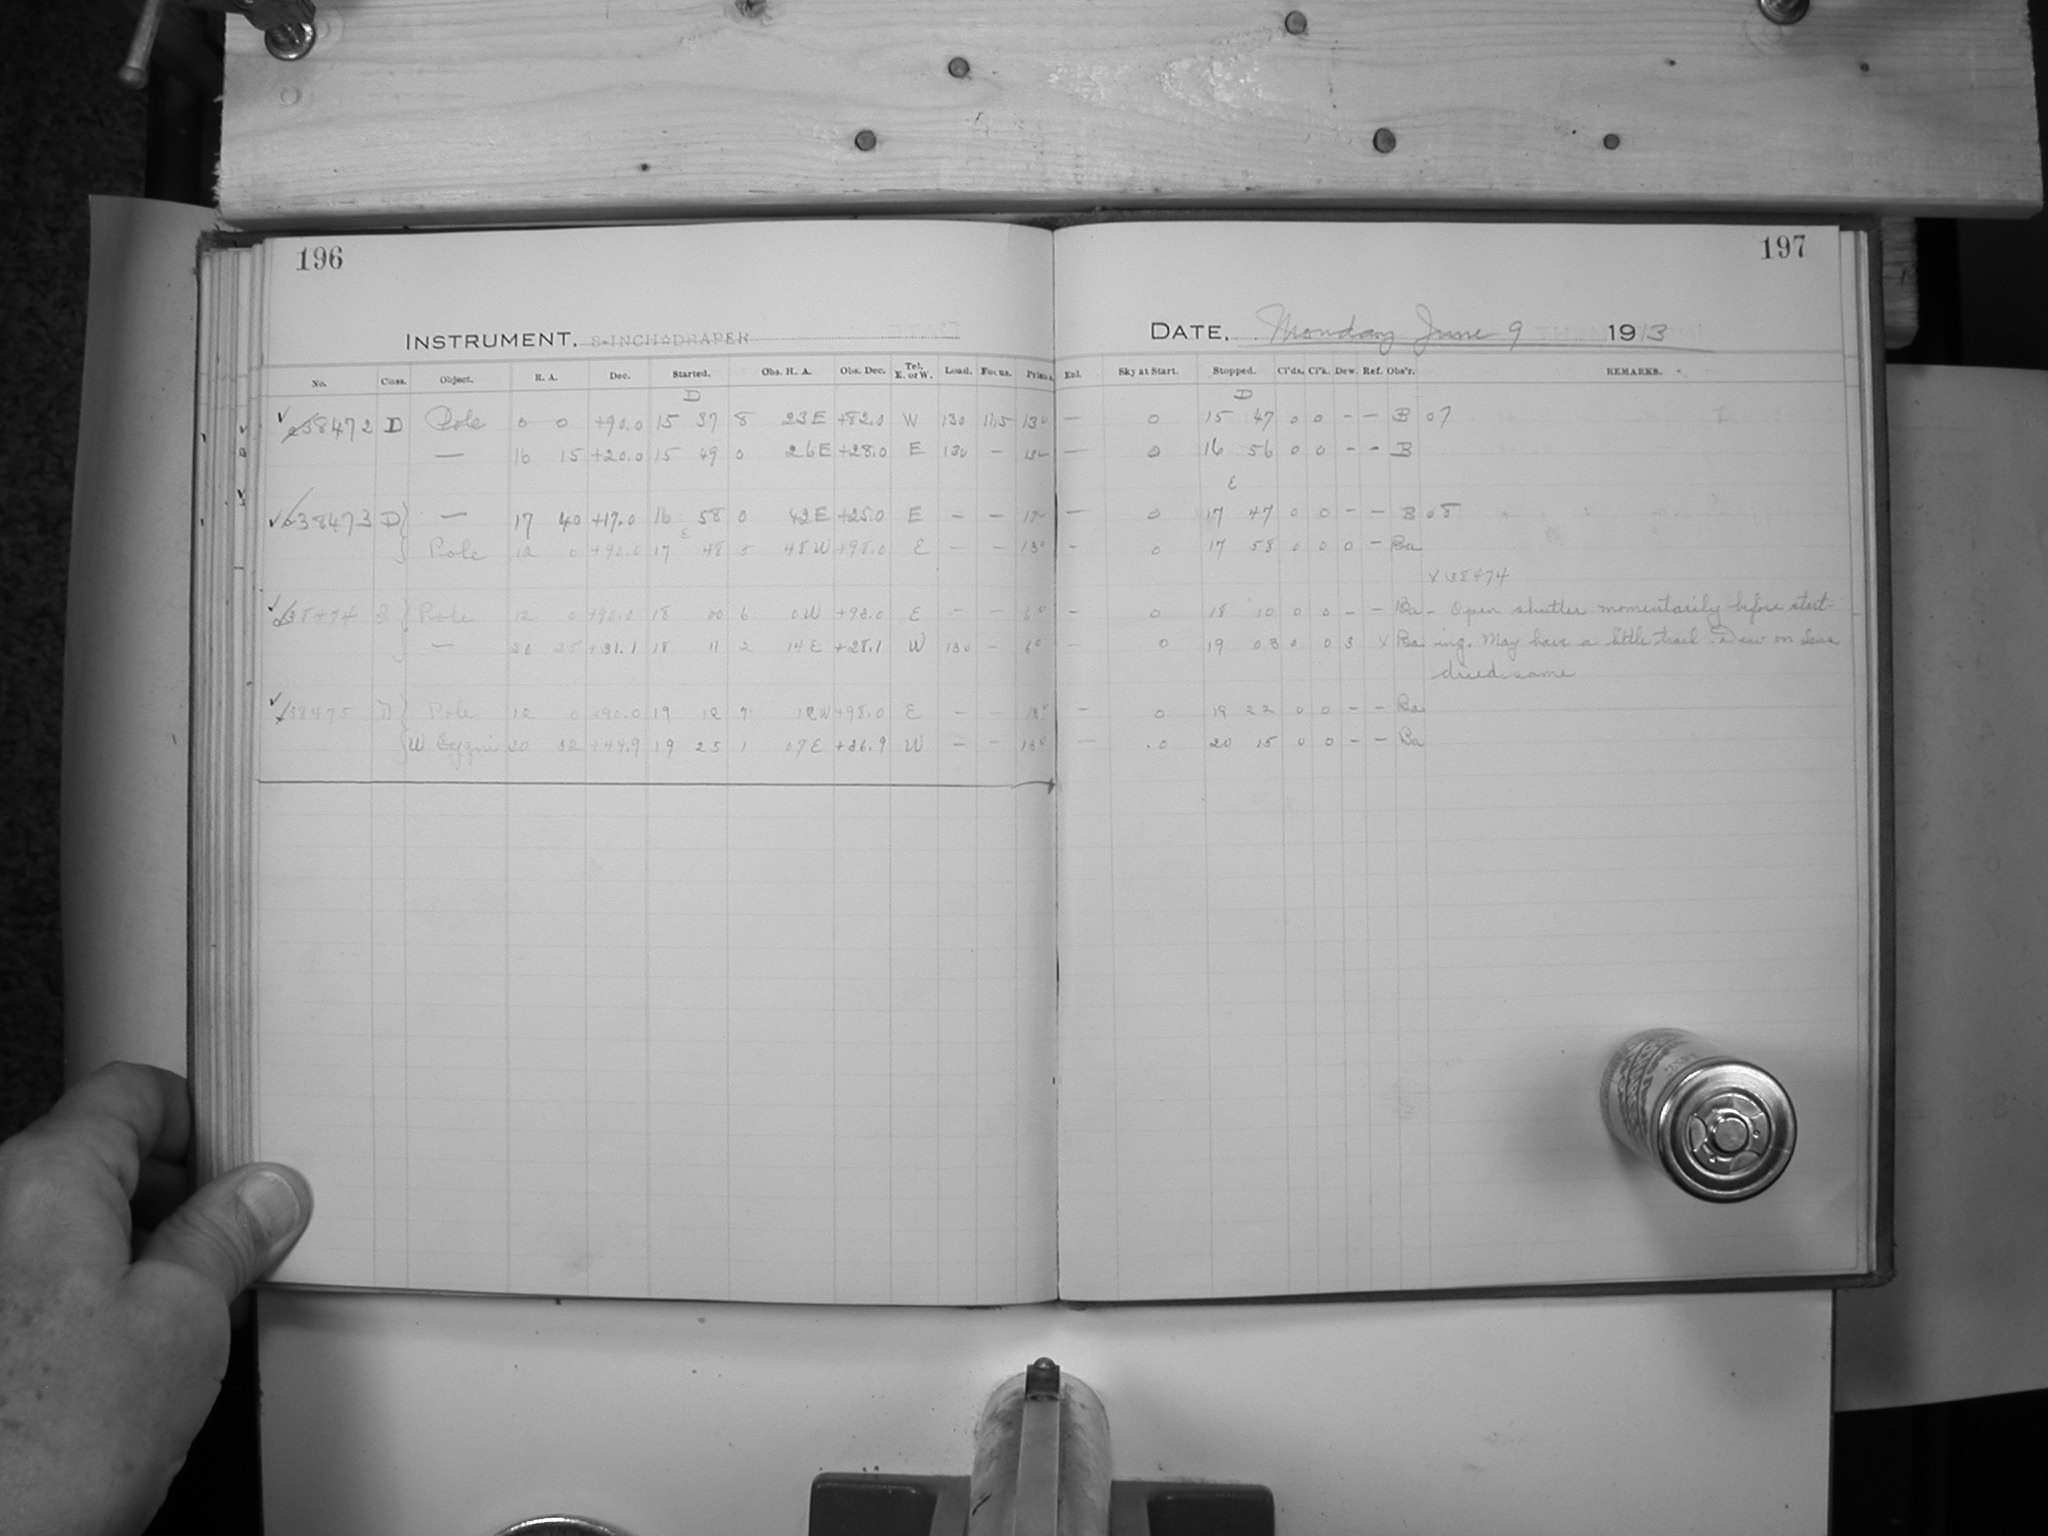 196
197
INSTRUMENT. 8-INCH DRAPER
DATE, Monday June 9 1913
No. Class. Object. R. A. Dec. Started. Obs. H. A. Obs. Dec. Tel. E. or W. Load. Focus. Prisms. Enl. Sky at Start. Stopped. Cl'ds. Cl'k. Dew. Ref. Obs'r. REMARKS.
D D
38472 D Pole 0 0 +90.0 15 37 8 23E +82.0 W 130 11.5 13° — 0 15 47 0 0 - - B 07
— 16 15 +20.0 15 49 0 26E +28.0 E 130 - — 0 16 56 0 0 - - B
E
38473 D — 17 40 +17.0 16 58 0 42E +25.0 E - - — 0 17 47 0 0 - - B 08
E
Pole 12 0 +90.0 17 48 5 48W +98.0 E - - 13° - 0 17 58 0 0 0 - Ba
X 38474
38474 Pole 12 0 +90.0 18 00 6 0W +98.0 E - - 6° - 0 18 10 0 0 - - Ba - Open shutter momentarily before start-
— 20 25 +31.1 18 11 2 14E +28.1 W 130 - 6° - 0 19 03 0 0 3 X Ba ing. May have a little trail. Dew on lens
dried same
38475 D Pole 12 0 +90.0 19 12 7 12W +98.0 E - - 13° - 0 19 22 0 0 - - Ba
W Cygni 20 32 +44.9 19 25 1 07E +36.9 W - - 13° — 0 20 15 0 0 - - Ba